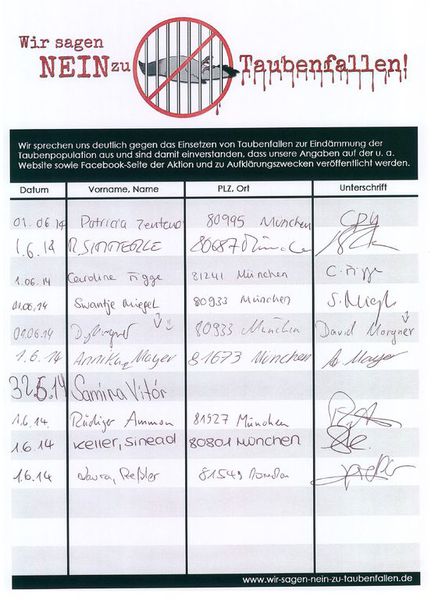 Wir sagen
NEIN zu Taubenfallen!
Wir sprechen uns deutlich gegen das Einsetzen von Taubenfallen zur Eindämmung der
Taubenpopulation aus und sind damit einverstanden, dass unsere Angaben auf der u. a.
Website sowie Facebook-Seite der Aktion und zu Aufklärungszwecken veröffentlicht werden.
Datum Vorname, Name PLZ, Ort Unterschrift
01.06.14 80995 München
1.6.14 R. 80687 München
1.06.14 Caroline Figge 81241 München C. Figge
01.06.14 Swantje Miegel 80933 München S. Miegel
01.06.14 80933 München David Morgner
1.6.14 Annika Mayer 81673 München A. Mayer
Samira Vitór
1.6.14. Rüdiger Ammon 81927 München
1.6.14 Keller, Sinead 80801 München
1.6.14 Laura, Peßler 81549
www.wir-sagen-nein-zu-taubenfallen.de